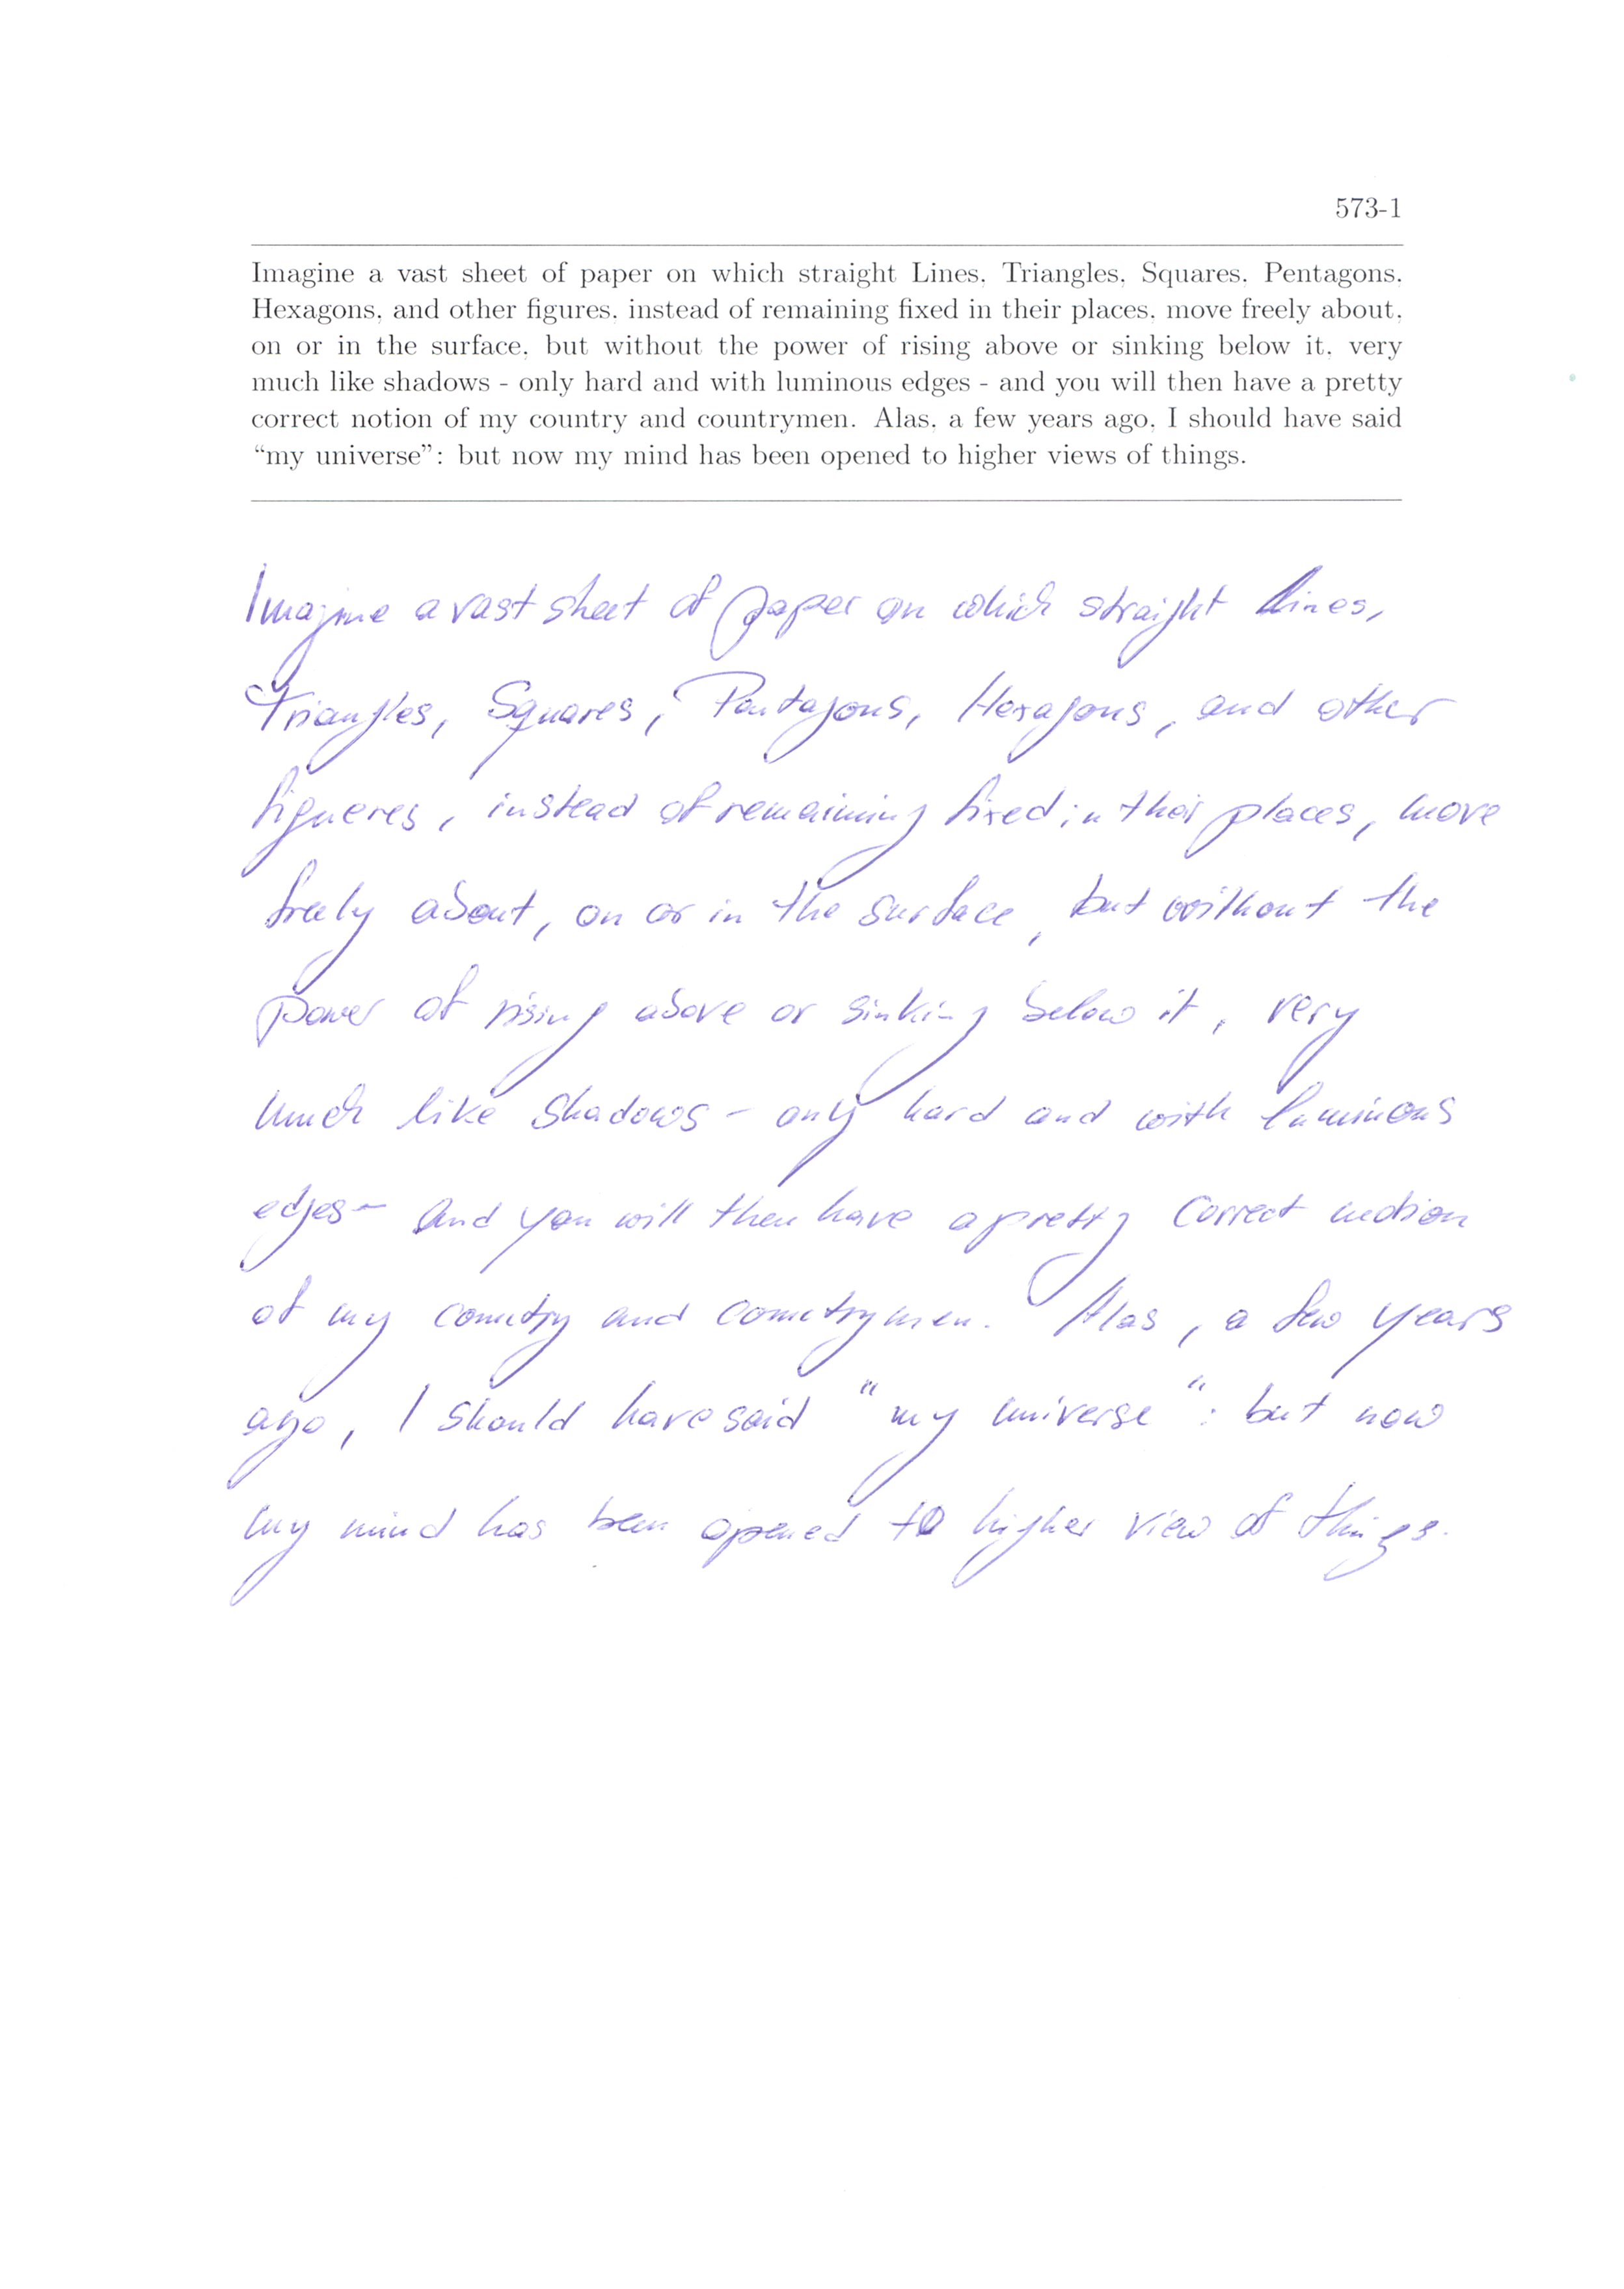 573-1
Imagine a vast sheet of paper on which straight Lines, Triangles, Squares, Pentagons,
Hexagons, and other figures, instead of remaining fixed in their places, move freely about,
on or in the surface, but without the power of rising above or sinking below it, very
much like shadows - only hard and with luminous edges - and you will then have a pretty
correct notion of my country and countrymen. Alas, a few years ago, I should have said
“my universe”: but now my mind has been opened to higher views of things.
Imagine a vast sheet of paper on which straight Lines,
Triangles, Squares, Pentagons, Hexagons, and other
figueres, instead of remaining fixed in their places, move
freely about, on or in the surface, but without the
power of rising above or sinking below it, very
much like shadows - only hard and with luminous
edges - and you will then have a pretty correct notion
of my country and countrymen. Alas, a few years
ago, I should have said "my universe": but now
my mind has been opened to higher view of things.